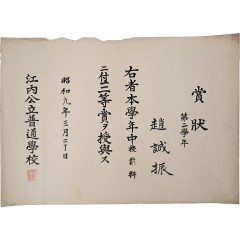 賞狀
第二學年
趙誠振
右者本學年中授業料
ニ付二等賞ヲ授與ス
昭和九年三月二十日
江內公立普通學校